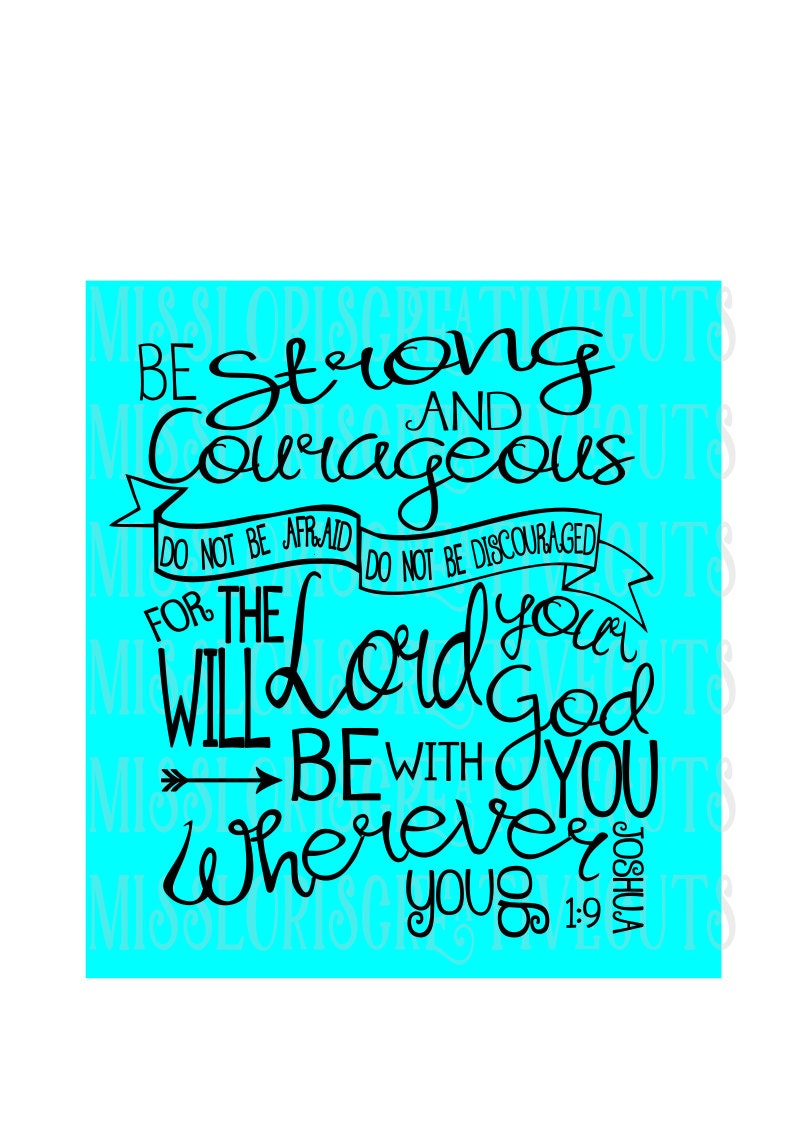 MISSLORISCREATIVECUTS
BE Strong
AND
Courageous
MISSLORISCREATIVECUTS
DO NOT BE AFRAID DO NOT BE DISCOURAGED
MISSLORISCREATIVECUTS
FOR THE Lord your
WILL God
MISSLORISCREATIVECUTS
BE WITH YOU
MISSLORISCREATIVECUTS
Wherever
you go
JOSHUA
1:9
MISSLORISCREATIVECUTS